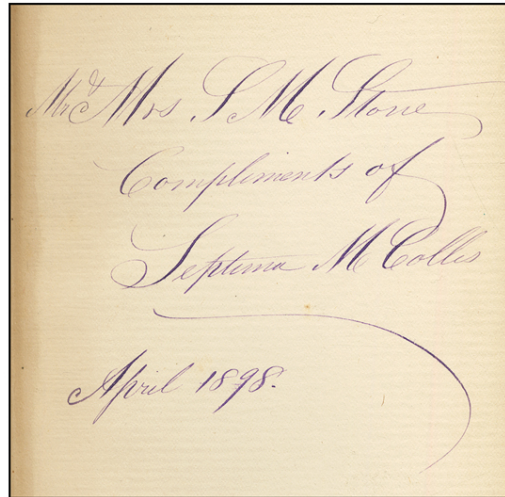 Mr & Mrs S M Stone
Compliments of
Septima M Collis
April 1898.